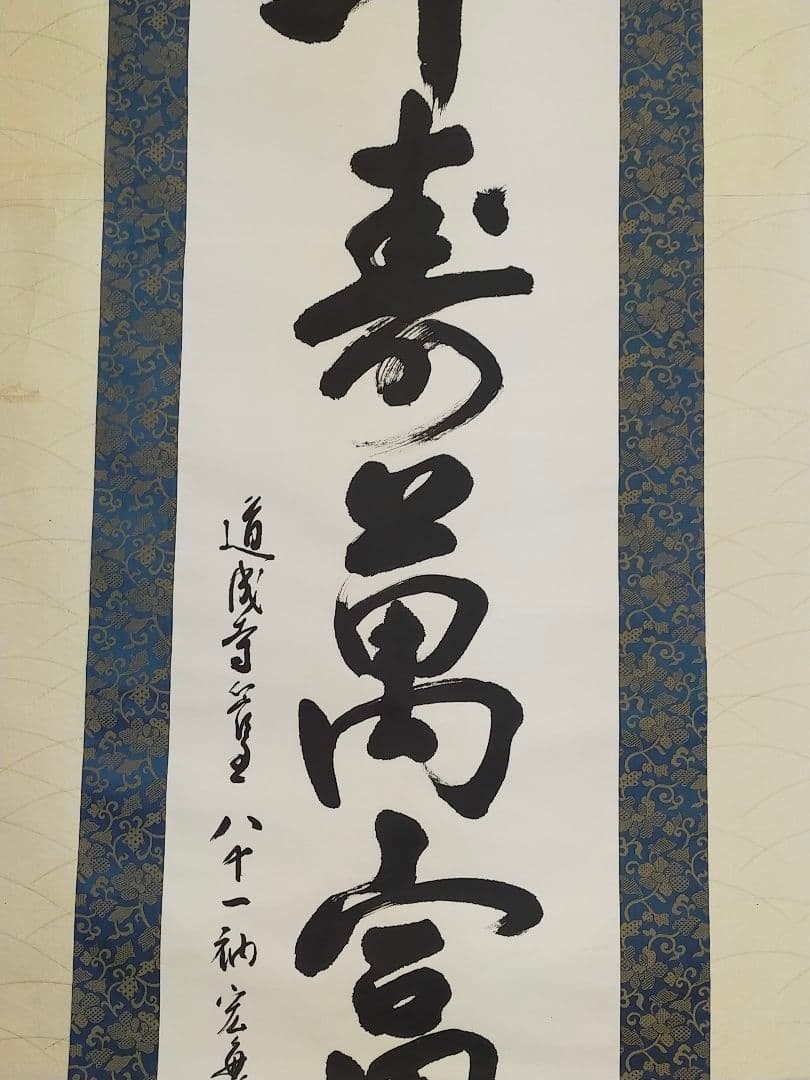 寿萬富
道成寺 八十一衲 宏